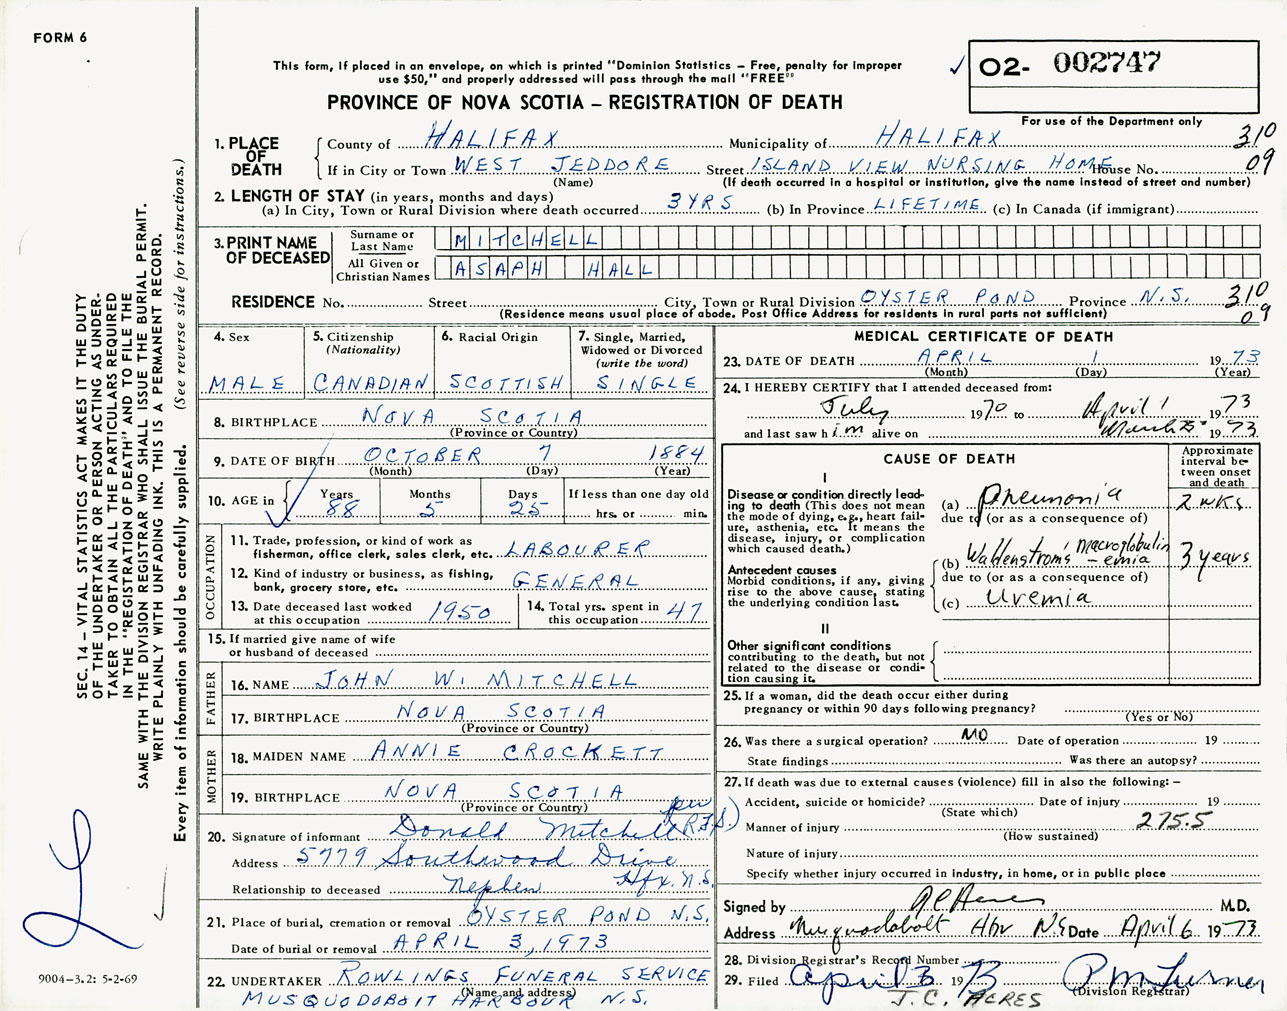 FORM 6
This form, if placed in an envelope, on which is printed "Dominion Statistics – Free, penalty for improper
use $50," and properly addressed will pass through the mail "FREE"
PROVINCE OF NOVA SCOTIA – REGISTRATION OF DEATH
02- 002747
For use of the Department only
1. PLACE OF DEATH
County of HALIFAX Municipality of HALIFAX 310
If in City or Town WEST JEDDORE Street ISLAND VIEW NURSING HOME House No. 09
(Name) (If death occurred in a hospital or institution, give the name instead of street and number)
2. LENGTH OF STAY (in years, months and days)
(a) In City, Town or Rural Division where death occurred 3 YRS (b) In Province LIFETIME (c) In Canada (if immigrant)
3. PRINT NAME OF DECEASED
Surname or Last Name MITCHELL
All Given or Christian Names ASAPH HALL
RESIDENCE No. Street City, Town or Rural Division OYSTER POND Province N.S. 310
(Residence means usual place of abode. Post Office Address for residents in rural parts not sufficient) 09
4. Sex
MALE
5. Citizenship
(Nationality)
CANADIAN
6. Racial Origin
SCOTTISH
7. Single, Married,
Widowed or Divorced
(write the word)
SINGLE
8. BIRTHPLACE NOVA SCOTIA
(Province or Country)
9. DATE OF BIRTH OCTOBER 7 1884
(Month) (Day) (Year)
10. AGE in Years Months Days If less than one day old
88 5 25 hrs. or min.
OCCUPATION
11. Trade, profession, or kind of work as
fisherman, office clerk, sales clerk, etc. LABOURER
12. Kind of industry or business, as fishing,
bank, grocery store, etc. GENERAL
13. Date deceased last worked
at this occupation 1950
14. Total yrs. spent in
this occupation 47
15. If married give name of wife
or husband of deceased
FATHER
16. NAME JOHN W. MITCHELL
17. BIRTHPLACE NOVA SCOTIA
(Province or Country)
MOTHER
18. MAIDEN NAME ANNIE CROCKETT
19. BIRTHPLACE NOVA SCOTIA
(Province or Country)
20. Signature of informant Donald Mitchell per
Address 5779 Southwood Drive
Hfx. N.S.
Relationship to deceased Nephew
21. Place of burial, cremation or removal OYSTER POND N.S.
Date of burial or removal APRIL 3, 1973
22. UNDERTAKER ROWLINGS FUNERAL SERVICE
(Name and address)
MUSQUODOBOIT HARBOUR N.S.
MEDICAL CERTIFICATE OF DEATH
23. DATE OF DEATH APRIL 1 1973
(Month) (Day) (Year)
24. I HEREBY CERTIFY that I attended deceased from:
July 1970 to April 1 1973
and last saw him alive on March 25 1973
CAUSE OF DEATH
Approximate
interval be-
tween onset
and death
I
Disease or condition directly lead-
ing to death (This does not mean
the mode of dying, e.g., heart fail-
ure, asthenia, etc. It means the
disease, injury, or complication
which caused death.)
(a) pneumonia 2 wks
due to (or as a consequence of)
Antecedent causes
Morbid conditions, if any, giving
rise to the above cause, stating
the underlying condition last.
(b) Waldenstrom's macroglobulin
– emia 3 years
due to (or as a consequence of)
(c) Uremia
II
Other significant conditions
contributing to the death, but not
related to the disease or condi-
tion causing it.
25. If a woman, did the death occur either during
pregnancy or within 90 days following pregnancy?
(Yes or No)
26. Was there a surgical operation? NO Date of operation 19
State findings Was there an autopsy?
27. If death was due to external causes (violence) fill in also the following: –
Accident, suicide or homicide? Date of injury 19
(State which)
Manner of injury 275.5
(How sustained)
Nature of injury
Specify whether injury occurred in industry, in home, or in public place
Signed by M.D.
Address Musquodoboit Hbr NS Date April 6 1973
28. Division Registrar's Record Number
29. Filed April 3 1973 P M Turner
(Division Registrar)
J.C. ACRES
SEC. 14 – VITAL STATISTICS ACT MAKES IT THE DUTY
OF THE UNDERTAKER OR PERSON ACTING AS UNDER-
TAKER TO OBTAIN ALL THE PARTICULARS REQUIRED
IN THE "REGISTRATION OF DEATH" AND TO FILE THE
SAME WITH THE DIVISION REGISTRAR WHO SHALL ISSUE THE BURIAL PERMIT.
WRITE PLAINLY WITH UNFADING INK. THIS IS A PERMANENT RECORD.
Every item of information should be carefully supplied. (See reverse side for instructions.)
9004–3.2: 5-2-69